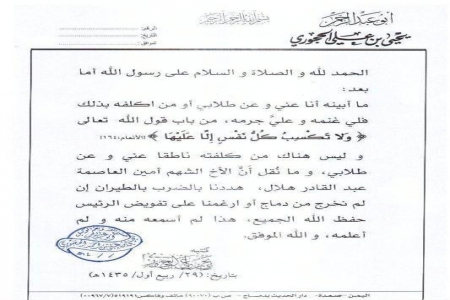 أبو عبد الرحمن
يحيى بن علي الحجوري
بسم الله الرحمن الرحيم
الرقم:
التاريخ:
الموافق:
الحمد لله و الصلاة و السلام على رسول الله أما
بعد:
ما أبينه أنا عني و عن طلابي أو من اكلفه بذلك
فلي غنمه و عليَّ جرمه، من باب قول الله تعالى
﴿ وَلَا تَكْسِبُ كُلُّ نَفْسٍ إِلَّا عَلَيْهَا ﴾ (الأنعام:١٦٤)
و ليس هناك من كلفته ناطقا عني و عن
طلابي، و ما نُقل أنَّ الأخ الشهم أمين العاصمة
عبد القادر هلال، هددنا بالضرب بالطيران إن
لم نخرج من دماج أو ارغمنا على تفويض الرئيس
حفظ الله الجميع، هذا لم أسمعه منه و لم
أعلمه، و الله الموفق.
كتبه
بتاريخ: (٢٩/ ربيع أول/ ١٤٣٥هـ)
اليمن - صعدة - دار الحديث بدماج - ص ب (٩٠٠٧٠) هاتف وفاكس (٠٠٩٦٧/٧/٥١٩١٩٦)